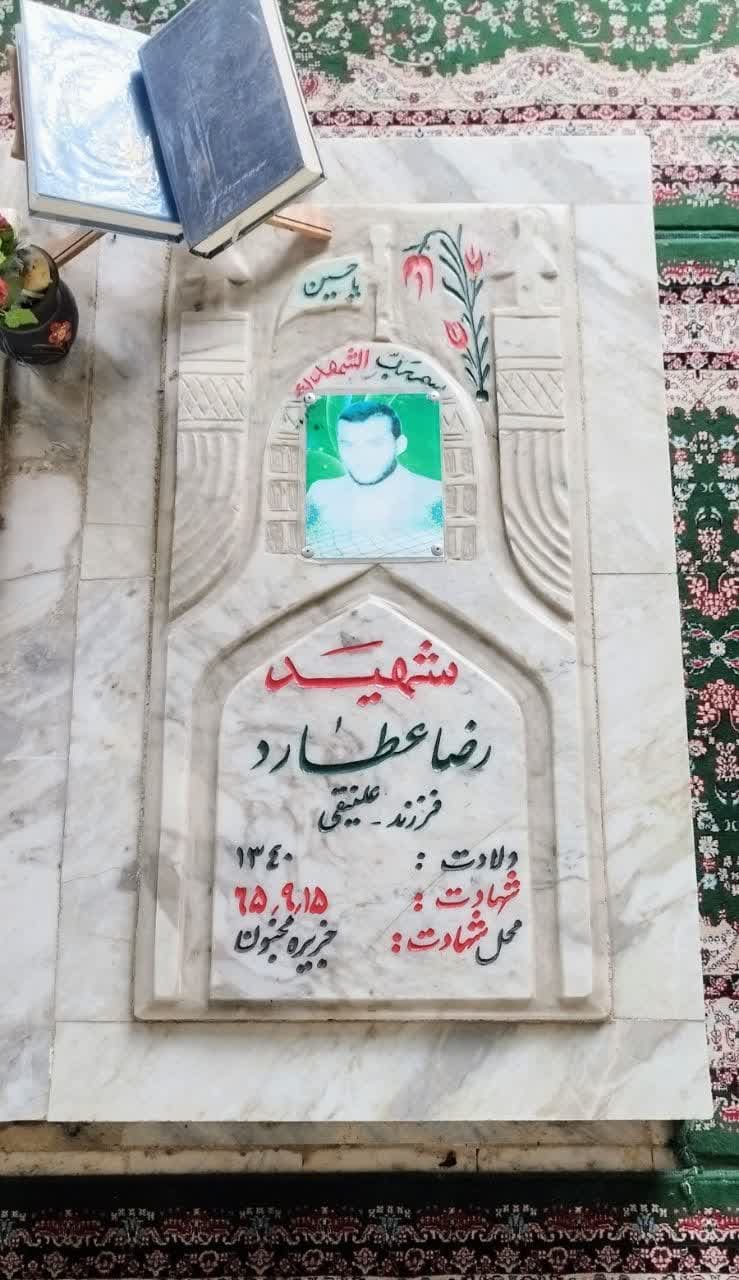 یا حسین
بسم رب الشهداء
شهید
رضا عطارد
فرزند - علینقی
ولادت : ۱۳٤۰
شهادت : ٦٥٫۹٫۱٥
محل شهادت : جزیره مجنون